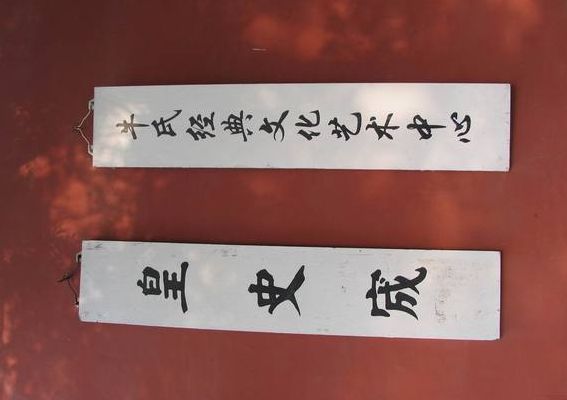 牛氏经典文化艺术中心
皇史宬